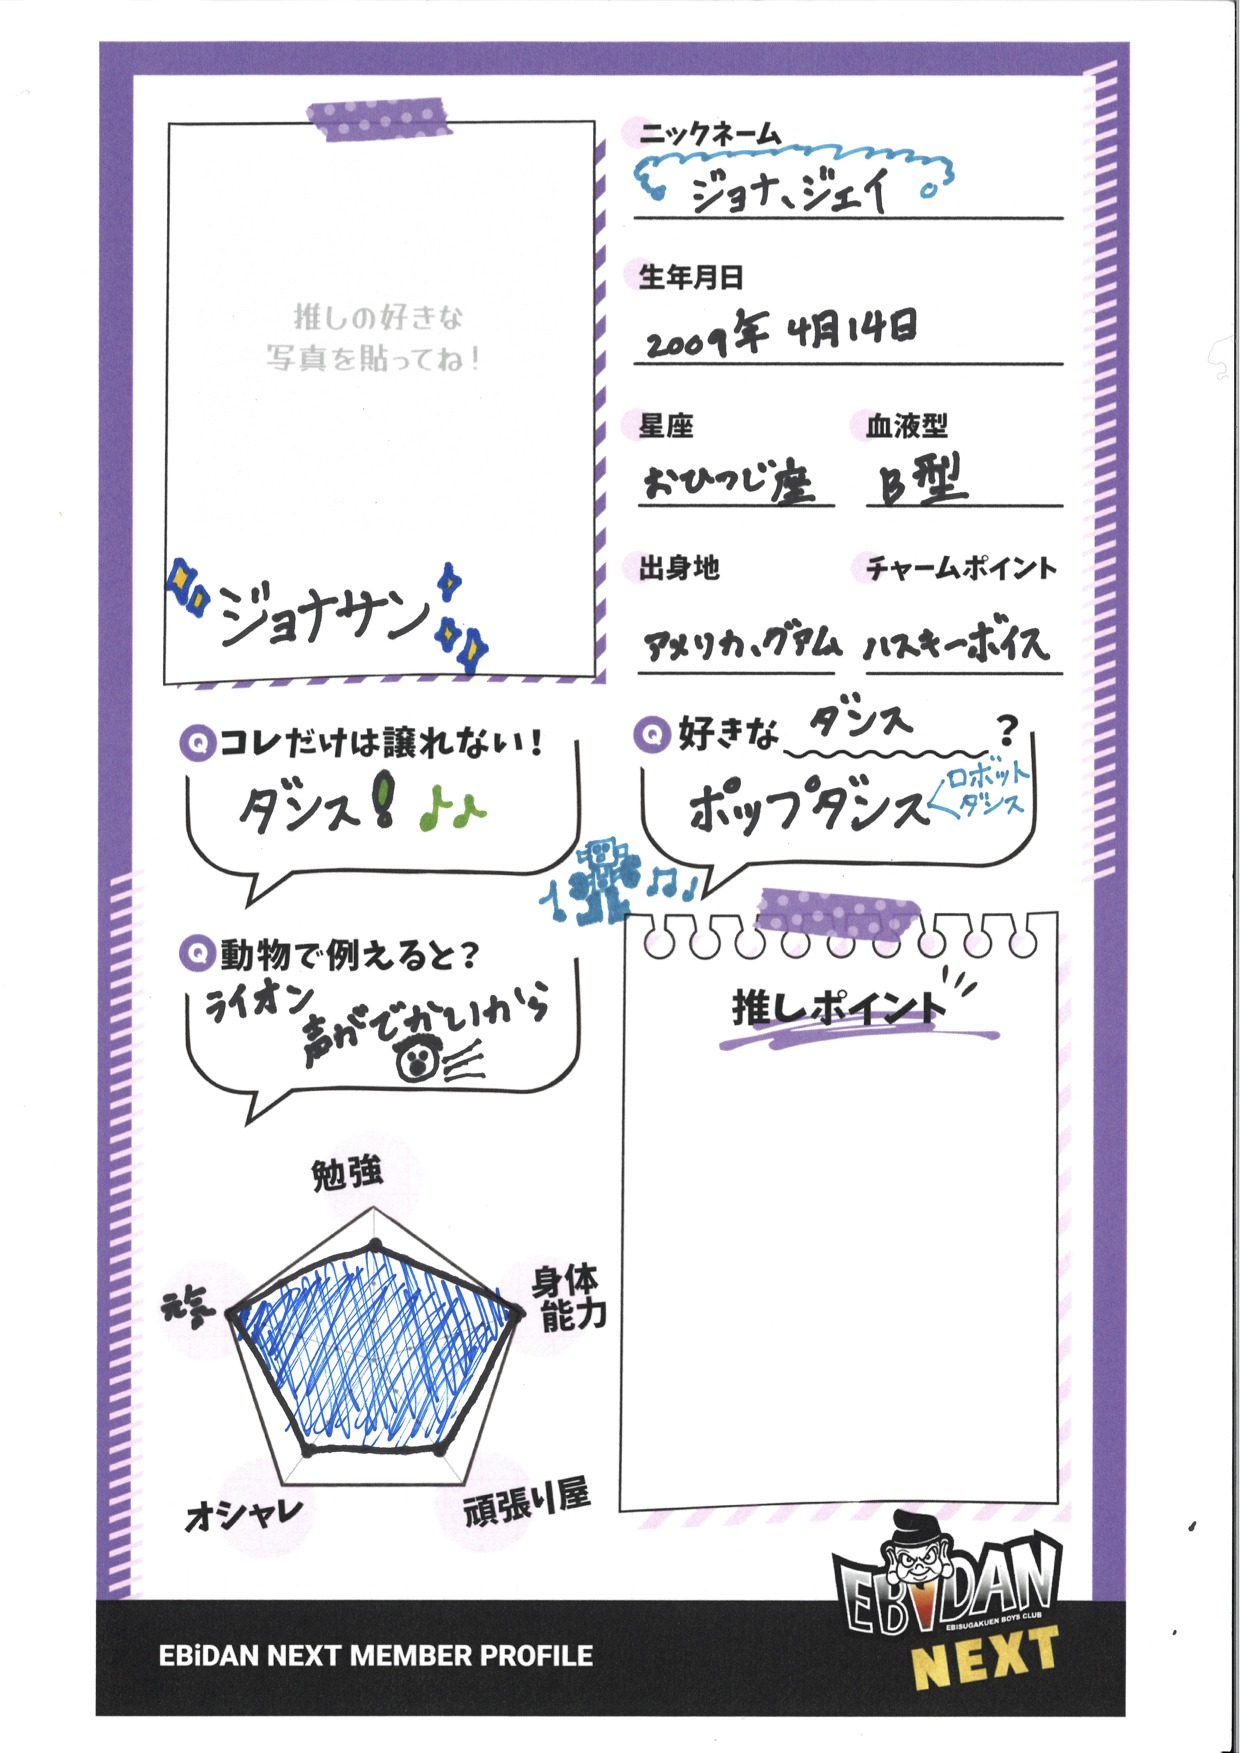 推しの好きな
写真を貼ってね!
ジョナサン
ニックネーム
ジョナ、ジェイ
生年月日
2009年 4月14日
星座
おひつじ座
血液型
B型
出身地
アメリカ、グアム
チャームポイント
ハスキーボイス
Q コレだけは譲れない!
ダンス!
Q 好きな ダンス ?
ポップダンス
ロボット
ダンス
Q 動物で例えると?
ライオン
声がでかいから
推しポイント
勉強
元気
身体
能力
オシャレ
頑張り屋
EBiDAN NEXT MEMBER PROFILE
EBiDAN
EBISUGAKUEN BOYS CLUB
NEXT